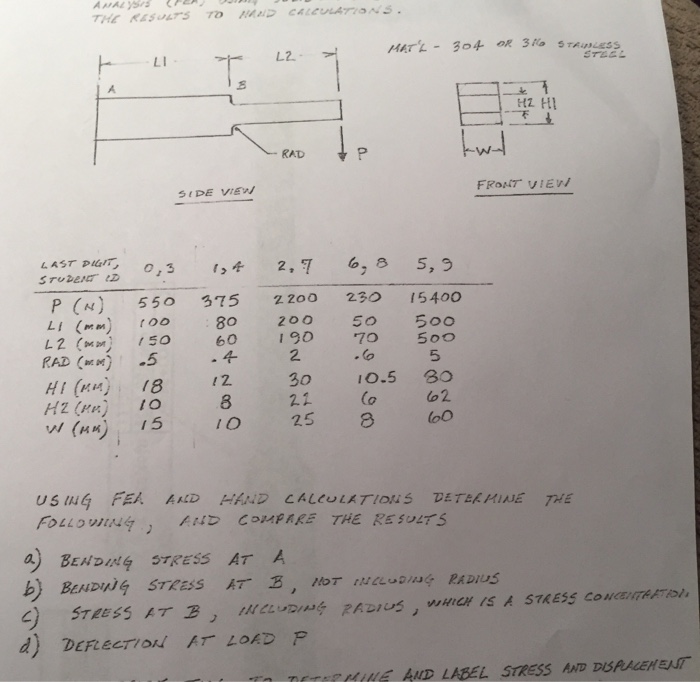 THE RESULTS TO HAND CALCULATIONS.
MAT'L - 304 OR 316 STAINLESS STEEL
L1 L2
A B
H2 H1
RAD P W
SIDE VIEW FRONT VIEW
LAST DIGIT, STUDENT ID 0,3 1,4 2,7 6,8 5,9
P (N) 550 375 2200 230 15400
L1 (MM) 100 80 200 50 500
L2 (MM) 150 60 190 70 500
RAD (MM) .5 .4 2 .6 5
H1 (MM) 18 12 30 10.5 80
H2 (MM) 10 8 22 6 62
W (MM) 15 10 25 8 60
USING FEA AND HAND CALCULATIONS DETERMINE THE
FOLLOWING, AND COMPARE THE RESULTS
a) BENDING STRESS AT A
b) BENDING STRESS AT B, NOT INCLUDING RADIUS
c) STRESS AT B, INCLUDING RADIUS, WHICH IS A STRESS CONCENTRATION.
d) DEFLECTION AT LOAD P
TO DETERMINE AND LABEL STRESS AND DISPLACEMENT